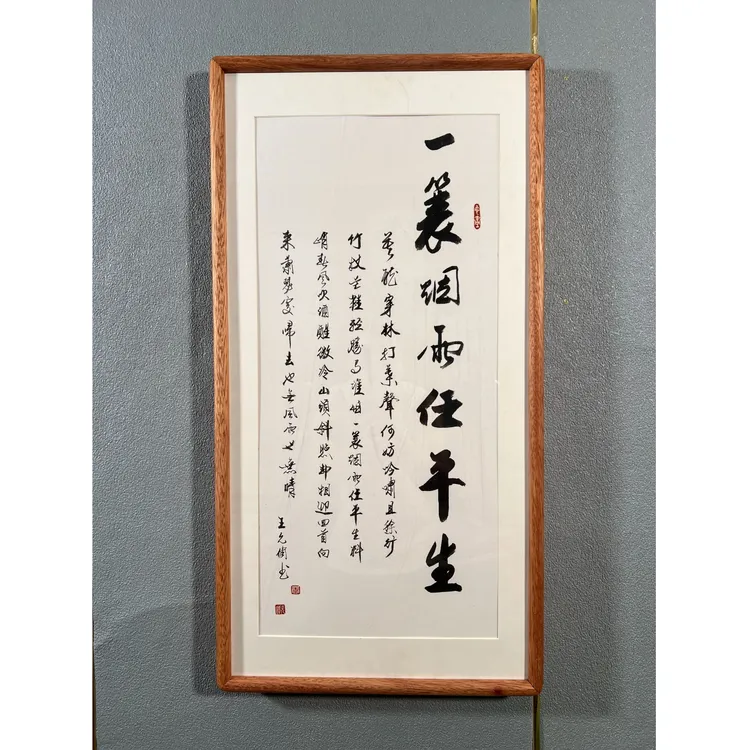 一蓑烟雨任平生
莫听穿林打葉聲何妨吟嘯且徐行
竹杖芒鞋轻勝马谁怕一蓑烟雨任平生料
峭春风吹酒醒微冷山頭斜照却相迎回首向
来蕭瑟处歸去也无风雨也無晴
王
书